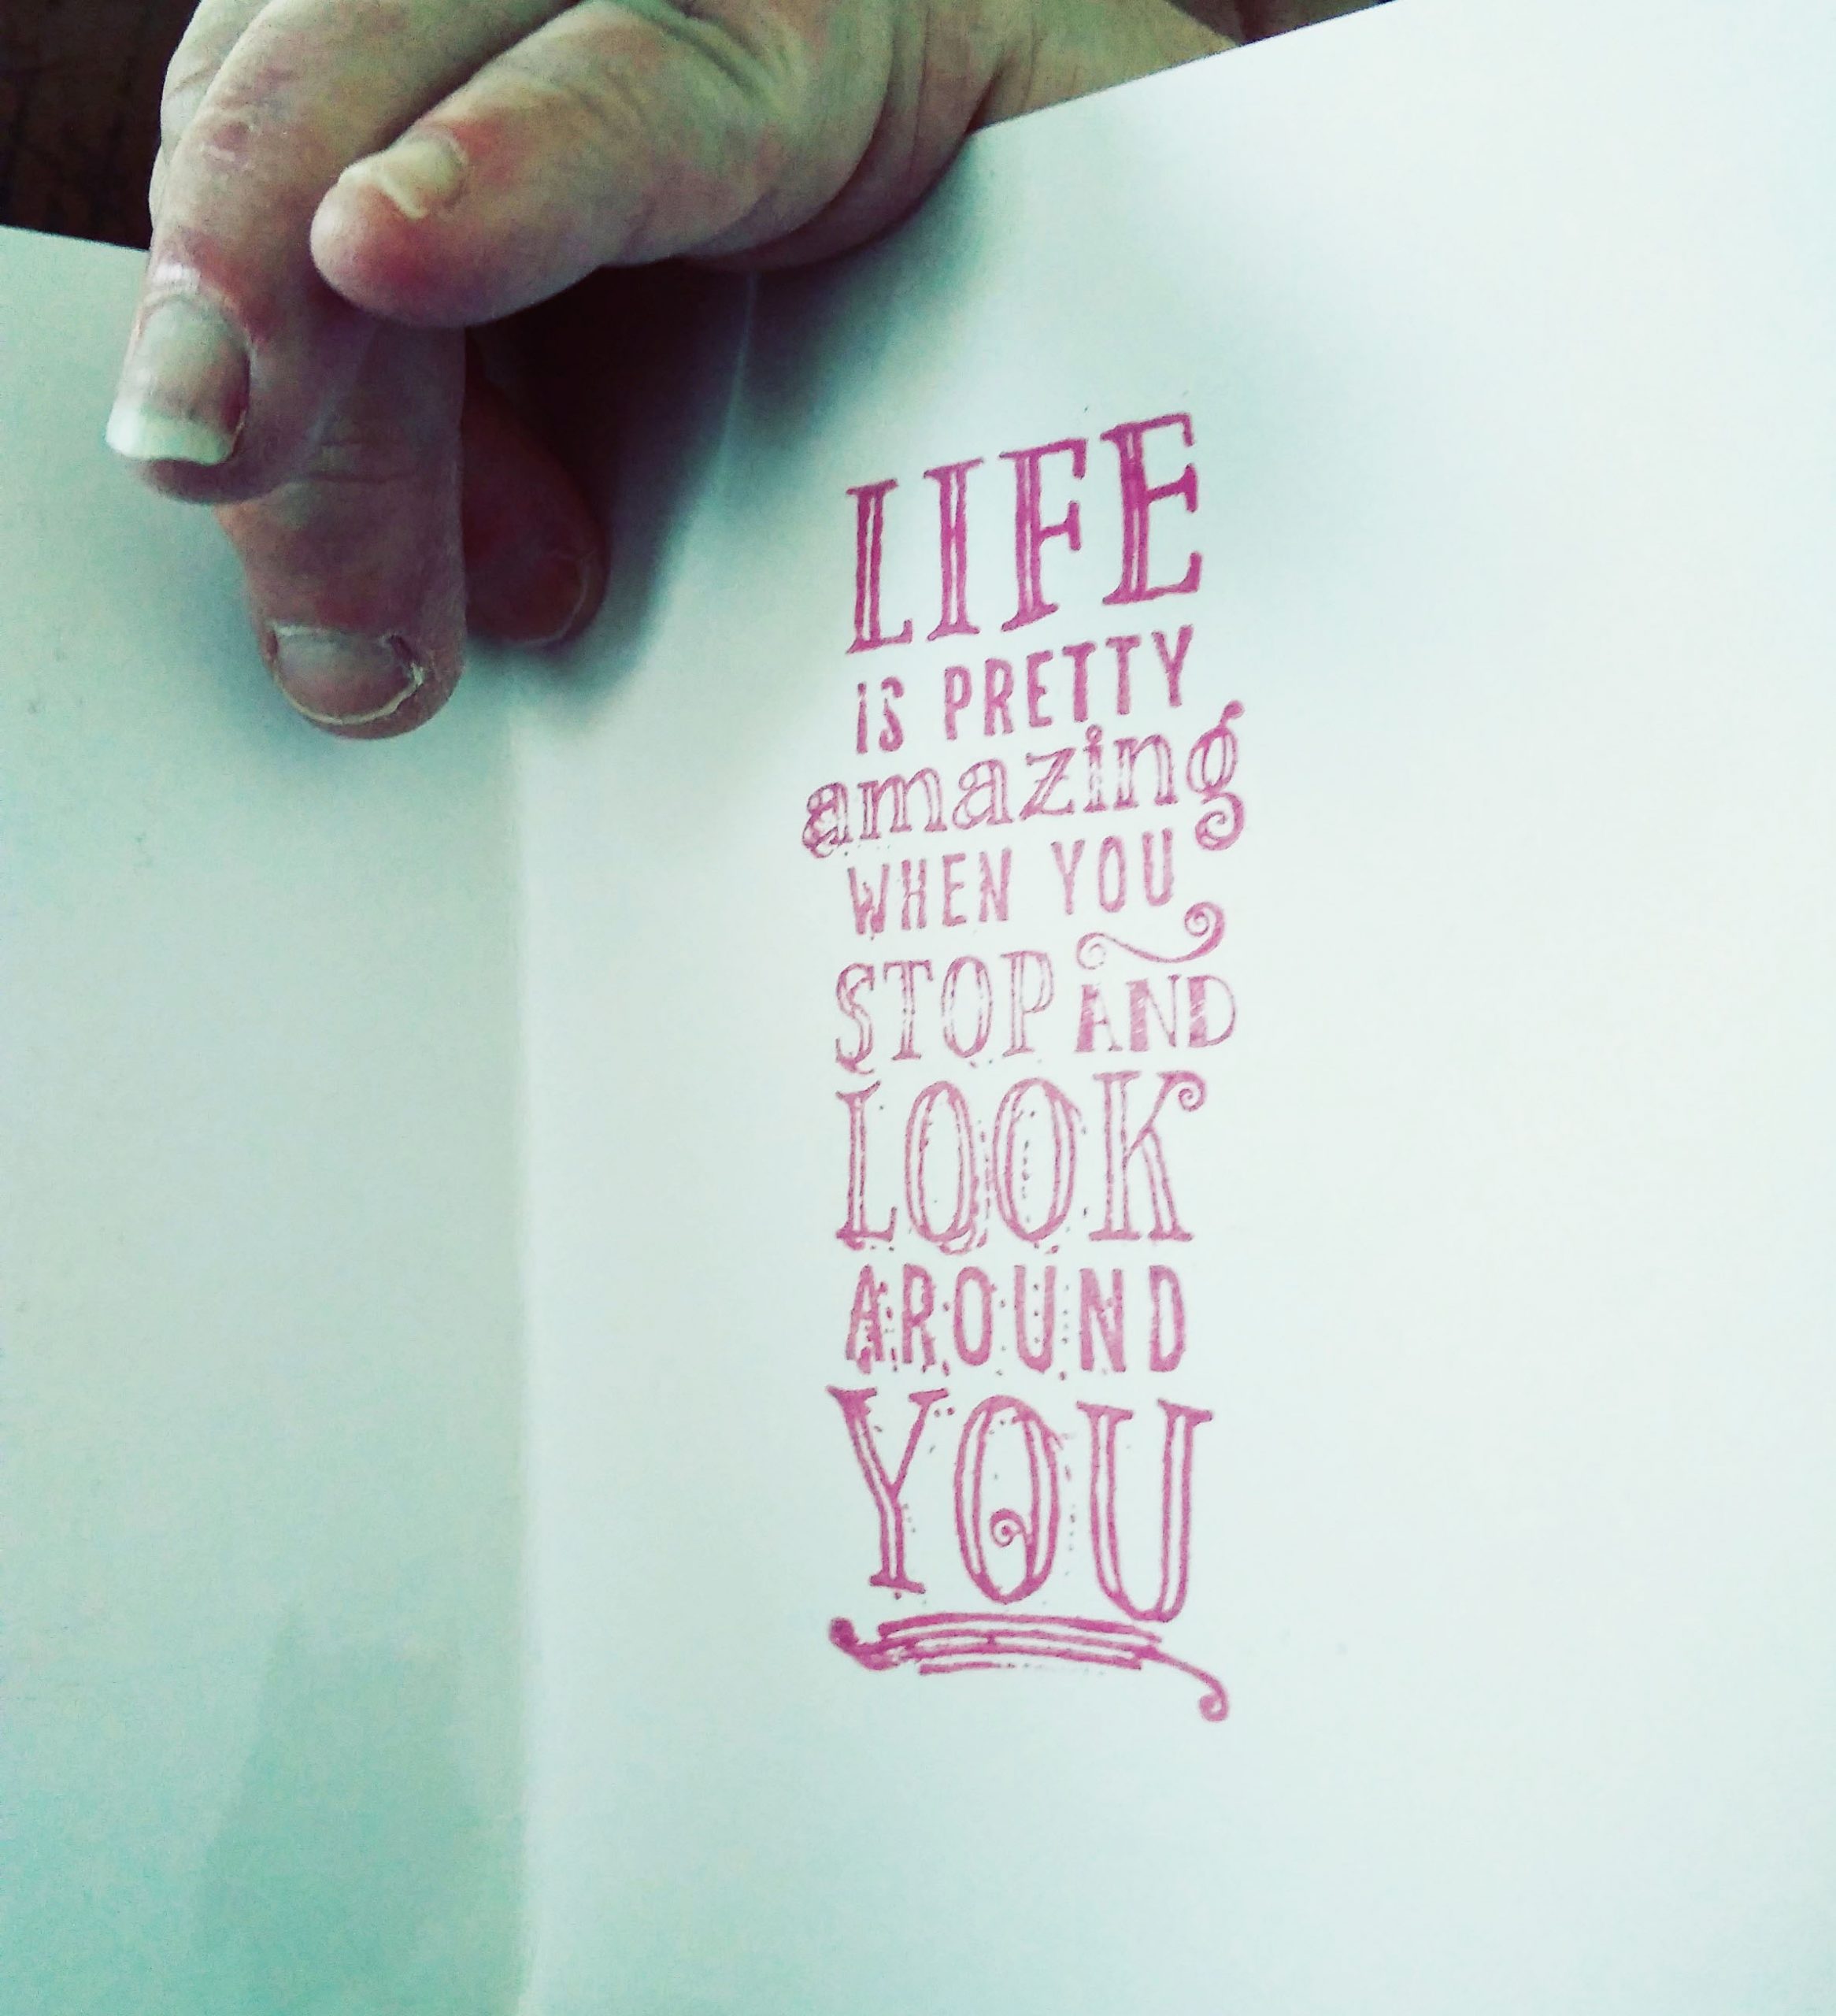 LIFE
iS PRETTY
amazing
WHEN YOU
STOP AND
LOOK
AROUND
YOU